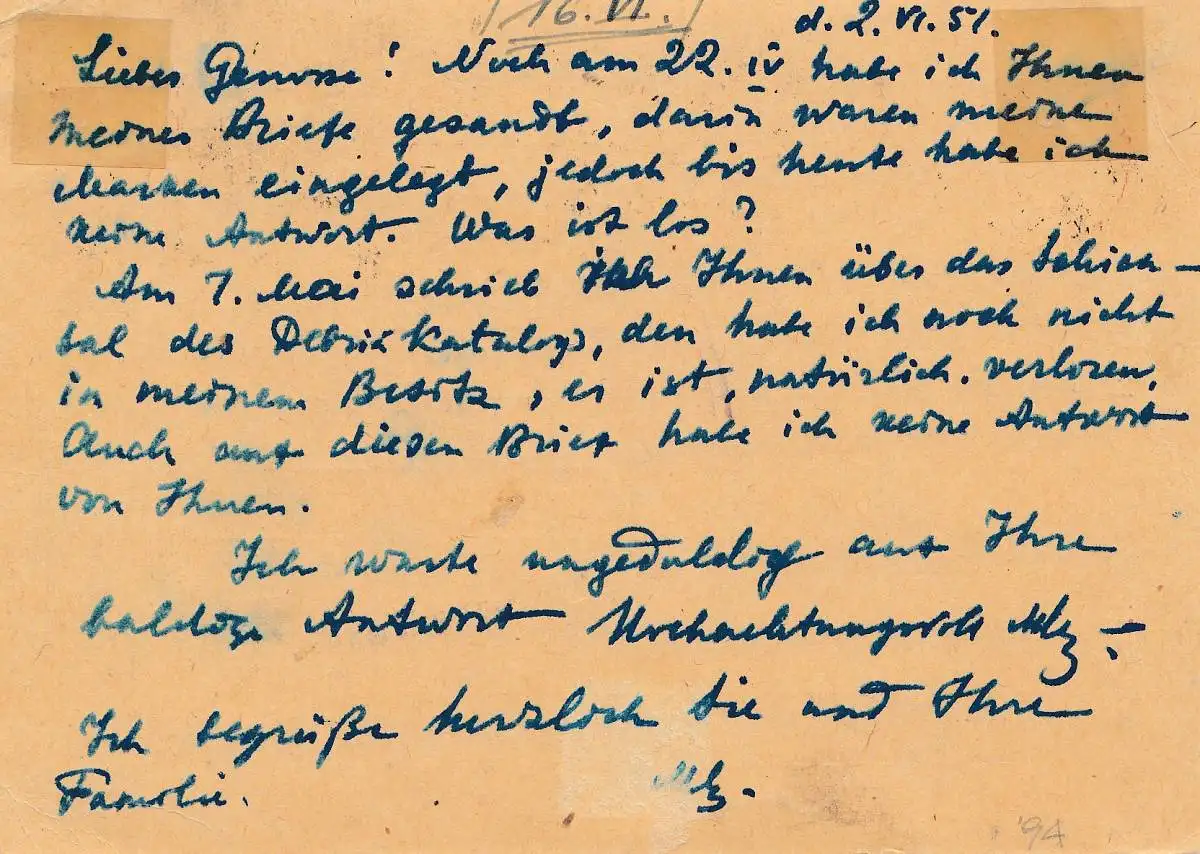 16. VI.
d. 2. VI. 51.
Lieber Genosse! Noch am 22. IV habe ich Ihnen
meines Briefe gesandt, darin waren meine
Marken eingelegt, jedoch bis heute habe ich
keine Antwort. Was ist los?
Am 7. Mai schrieb ich Ihnen über das Schick-
sal des Katalogs, den habe ich noch nicht
in meinem Besitz, er ist, natürlich. verloren,
Auch auf diesen Brief habe ich keine Antwort
von Ihnen.
Ich warte ungeduldig auf Ihre
baldige Antwort Hochachtungsvoll
Ich begrüße herzlich Sie und Ihre
Familie.
94